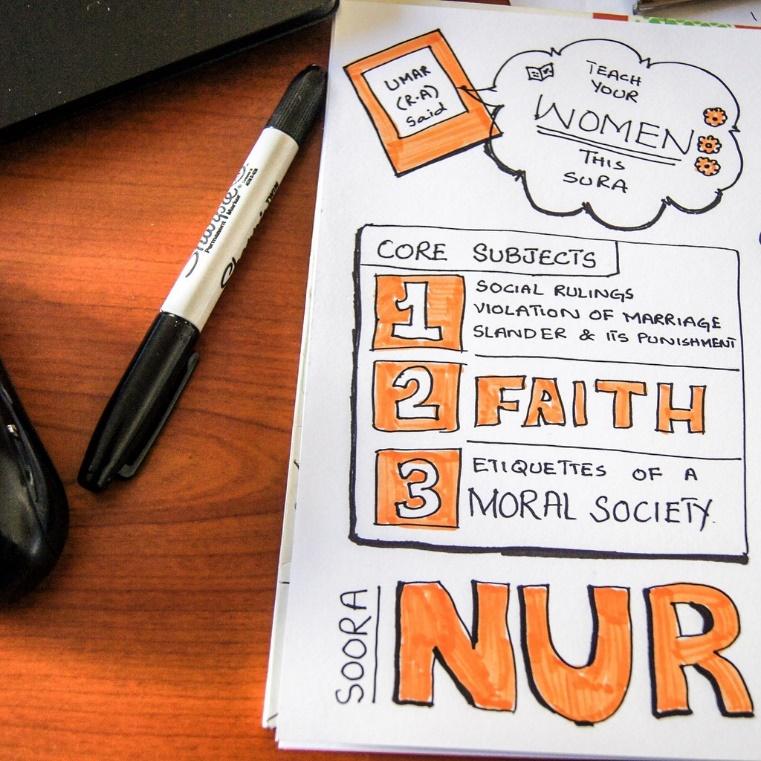 UMAR
(R.A)
Said
TEACH
YOUR
WOMEN
THIS
SURA
CORE SUBJECTS
1
SOCIAL RULINGS
VIOLATION OF MARRIAGE
SLANDER & ITS PUNISHMENT
2 FAITH
3
ETIQUETTES OF A
MORAL SOCIETY.
SOORA
NUR
Sharpie
Permanent Marker
Sharpie